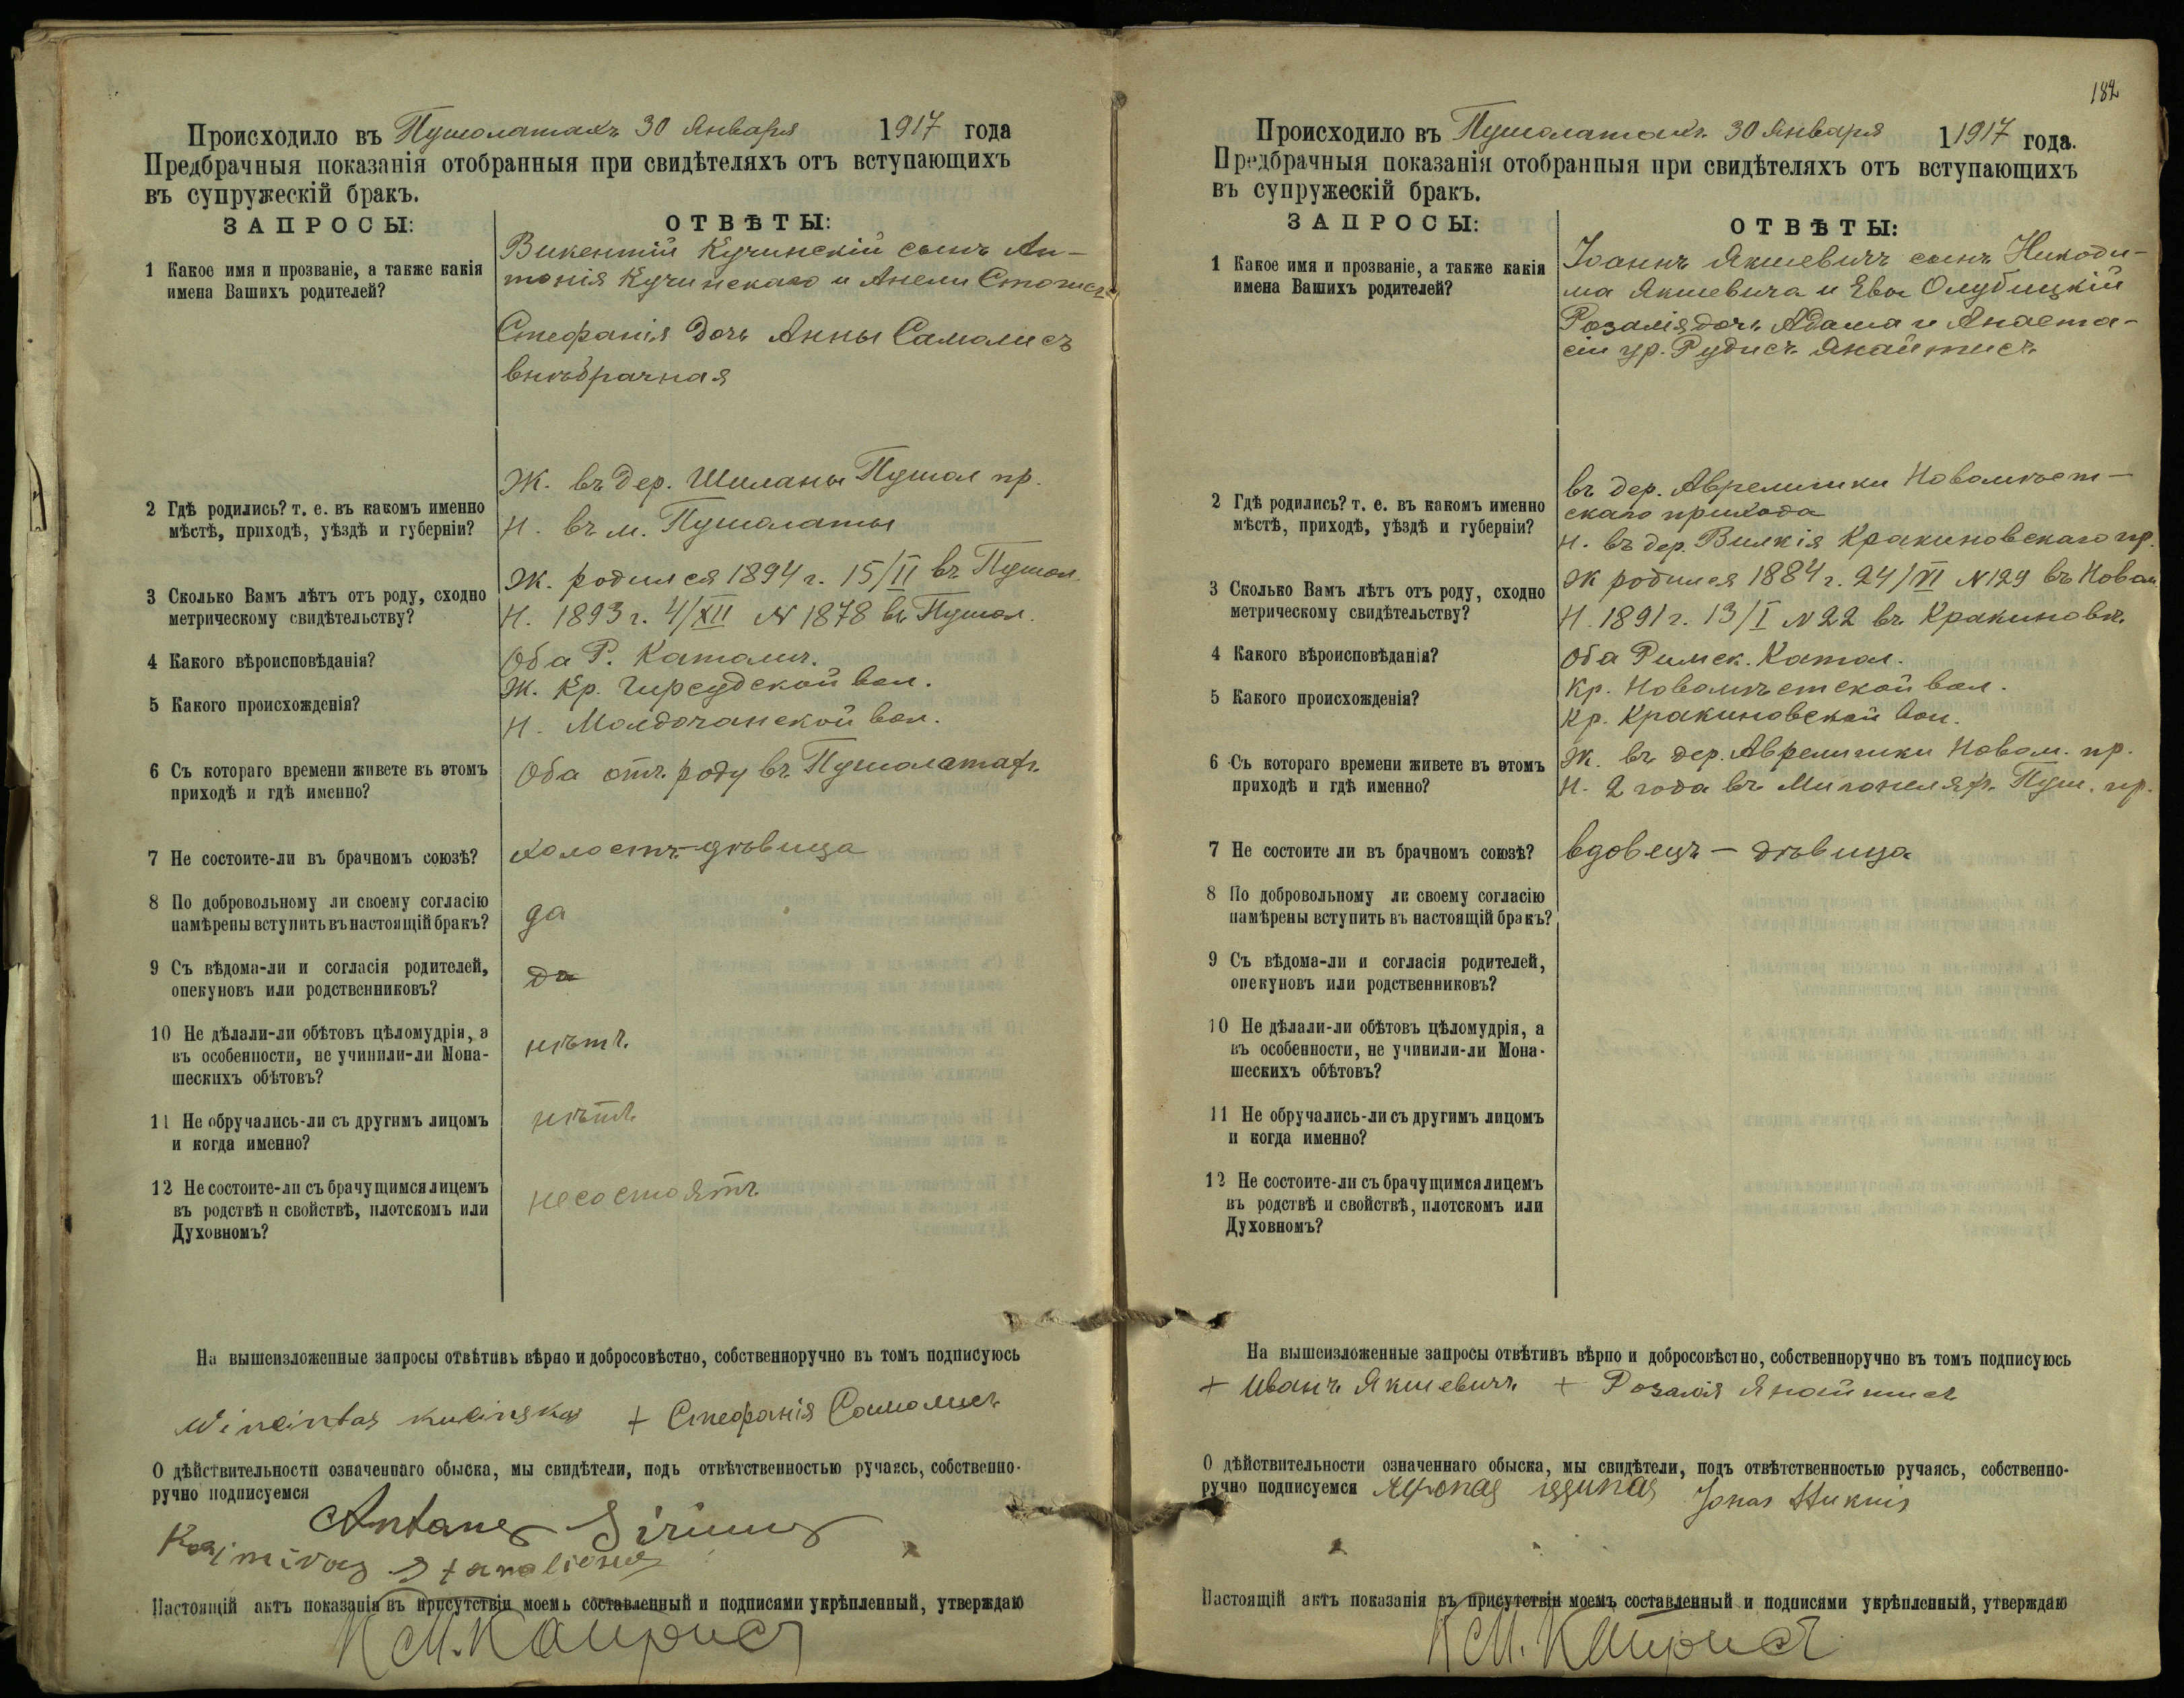 Происходило въ Пушолатахъ 30 Января 1917 года
Предбрачныя показанія отобранныя при свидѣтеляхъ отъ вступающихъ
въ супружескій бракъ.
ЗАПРОСЫ:
ОТВѢТЫ:
1 Какое имя и прозваніе, а также какія
имена Вашихъ родителей?
Викентій Кучинскій сынъ Ан-
тонія Кучинскаго и Анели
Стефанія дочь Анны Самолисъ
внѣбрачная
2 Гдѣ родились? т. е. въ какомъ именно
мѣстѣ, приходѣ, уѣздѣ и губерніи?
Ж. въ дер. Шиланы Пушол пр.
Н. въ м. Пушолаты
3 Сколько Вамъ лѣтъ отъ роду, сходно
метрическому свидѣтельству?
Ж. родился 1894 г. 15/II въ Пушол.
Н. 1893 г. 4/XII № 1878 въ Пушол.
4 Какого вѣроисповѣданія?
Оба Р. Католич.
5 Какого происхожденія?
Ж. Кр. Гирсудской вол.
Н. Молдочанской вол.
6 Съ котораго времени живете въ этомъ
приходѣ и гдѣ именно?
Оба отъ роду въ Пушолатахъ
7 Не состоите-ли въ брачномъ союзѣ?
холостъ-дѣвица
8 По добровольному ли своему согласію
намѣрены вступить въ настоящій бракъ?
да
9 Съ вѣдома-ли и согласія родителей,
опекуновъ или родственниковъ?
да
10 Не дѣлали-ли обѣтовъ цѣломудрія, а
въ особенности, не учинили-ли Мона-
шескихъ обѣтовъ?
нѣтъ
11 Не обручались-ли съ другимъ лицомъ
и когда именно?
нѣтъ
12 Не состоите-ли съ брачущимся лицемъ
въ родствѣ и свойствѣ, плотскомъ или
Духовномъ?
не состоятъ
На вышеизложенные запросы отвѣтивъ вѣрно и добросовѣстно, собственноручно въ томъ подписуюсь
Wincintas Kucinskas + Стефанія Самолисъ
О дѣйствительности означеннаго обыска, мы свидѣтели, подъ отвѣтственностью ручаясь, собственно-
ручно подписуемся
Antanas
Kazimiras
Настоящій актъ показанія въ присутствіи моемъ составленный и подписями укрѣпленный, утверждаю
182
Происходило въ Пушолатахъ 30 Января 11917 года.
Предбрачныя показанія отобранныя при свидѣтеляхъ отъ вступающихъ
въ супружескій бракъ.
ЗАПРОСЫ:
ОТВѢТЫ:
1 Какое имя и прозваніе, а также какія
имена Вашихъ родителей?
Іоаннъ Якшевичъ сынъ Никоди-
ма Якшевича и Евы Олубицкій
Розалія дочь Адама и Анаста-
сіи ур. Рудисъ Янайтисъ
2 Гдѣ родились? т. е. въ какомъ именно
мѣстѣ, приходѣ, уѣздѣ и губерніи?
въ дер. Аврелишки Новомѣст-
скаго прихода
Н. въ дер. Вилкія Кракиновскаго пр.
3 Сколько Вамъ лѣтъ отъ роду, сходно
метрическому свидѣтельству?
Ж родился 1884 г. 24/VI № 129 въ Новом
Н. 1891 г. 13/I № 22 въ Кракиновѣ.
4 Какого вѣроисповѣданія?
Оба Римск. Катол.
5 Какого происхожденія?
Кр. Новомѣстской вол.
Кр. Кракиновской вол.
6 Съ котораго времени живете въ этомъ
приходѣ и гдѣ именно?
Ж. въ дер. Аврелишки Новом. пр.
Н. 2 года въ Пуш. пр.
7 Не состоите ли въ брачномъ союзѣ?
вдовецъ – дѣвица
8 По добровольному ли своему согласію
намѣрены вступить въ настоящій бракъ?
9 Съ вѣдома-ли и согласія родителей,
опекуновъ или родственниковъ?
10 Не дѣлали-ли обѣтовъ цѣломудрія, а
въ особенности, не учинили-ли Мона-
шескихъ обѣтовъ?
11 Не обручались-ли съ другимъ лицомъ
и когда именно?
12 Не состоите-ли съ брачущимся лицемъ
въ родствѣ и свойствѣ, плотскомъ или
Духовномъ?
На вышеизложенные запросы отвѣтивъ вѣрно и добросовѣстно, собственноручно въ томъ подписуюсь
+ Иванъ Якшевичъ + Розалія Янайтисъ
О дѣйствительности означеннаго обыска, мы свидѣтели, подъ отвѣтственностью ручаясь, собственно-
ручно подписуемся Jonas
Настоящій актъ показанія въ присутствіи моемъ составленный и подписями укрѣпленный, утверждаю